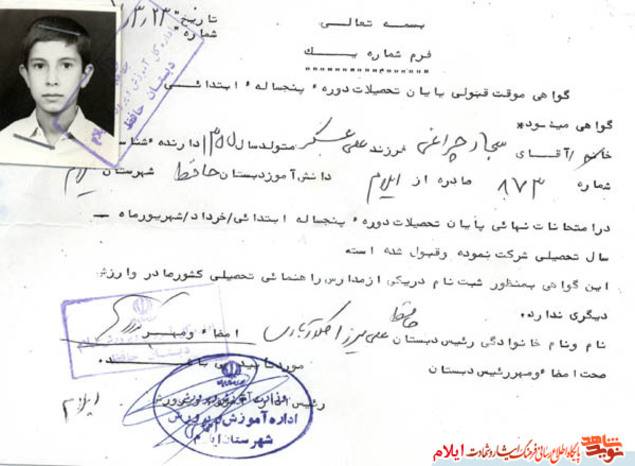 بسمه تعالی
تاریخ ۳/۲۳
شماره
فرم شماره یک
گواهی موقت قبولی پایان تحصیلات دوره پنجساله ابتدائی
گواهی میشود
خانم/آقای سجاد چراغی فرزند علی عسکر متولد سال ۱۳۵۵ دارنده شناسنامه
شماره ۸۷۳ صادره از ایلام دانش آموز دبستان حافظ شهرستان ایلام
در امتحانات نهائی پایان تحصیلات دوره پنجساله ابتدائی/خرداد/شهریورماه
سال تحصیلی شرکت نموده و قبول شده است
این گواهی بمنظور ثبت نام در یکی از مدارس راهنمائی تحصیلی کشور صادر و ارزش
دیگری ندارد
نام و نام خانوادگی رئیس دبستان حافظ علی میرزا امضاء و مهر
صحت امضاء و مهر رئیس دبستان مورد تأیید می باشد
رئیس اداره آموزش و پرورش ایلام
اداره کل آموزش و پرورش
دبستان حافظ
ایلام
دبستان حافظ
وزارت آموزش و پرورش
اداره آموزش و پرورش
شهرستان ایلام
نوید شاهد
پایگاه اطلاع رسانی فرهنگ ایثار و شهادت ایلام